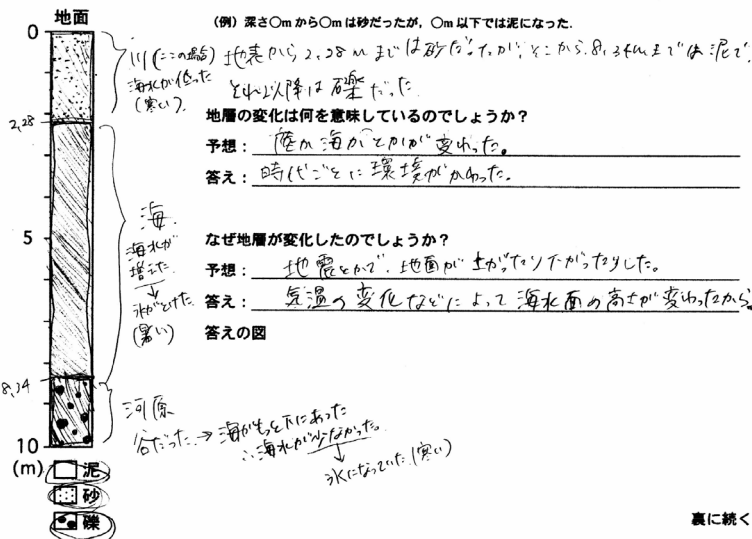 地面
(例) 深さ〇mから〇mは砂だったが，〇m以下では泥になった．
0
川(ここの場合)
海水が低った
(寒い)
地表から2,28mまでは砂だったが、そこから8,34mまでは泥で
それ以降は礫だった
2,28
地層の変化は何を意味しているのでしょうか？
予想：
海か
とかが変わった。
答え：時代ごとに環境がかわった。
5
海
海水が
増えた
↓
氷がとけた
(暑い)
なぜ地層が変化したのでしょうか？
予想：地震とかで、地面が上がったり下がったりした。
答え：気温の変化などによって海水面の高さが変わったから。
答えの図
8,34
河原
谷だった→海がもっと下にあった
∴海水が少なかった。
↓
氷になっていた(寒い)
10
(m)
泥
砂
礫
裏に続く